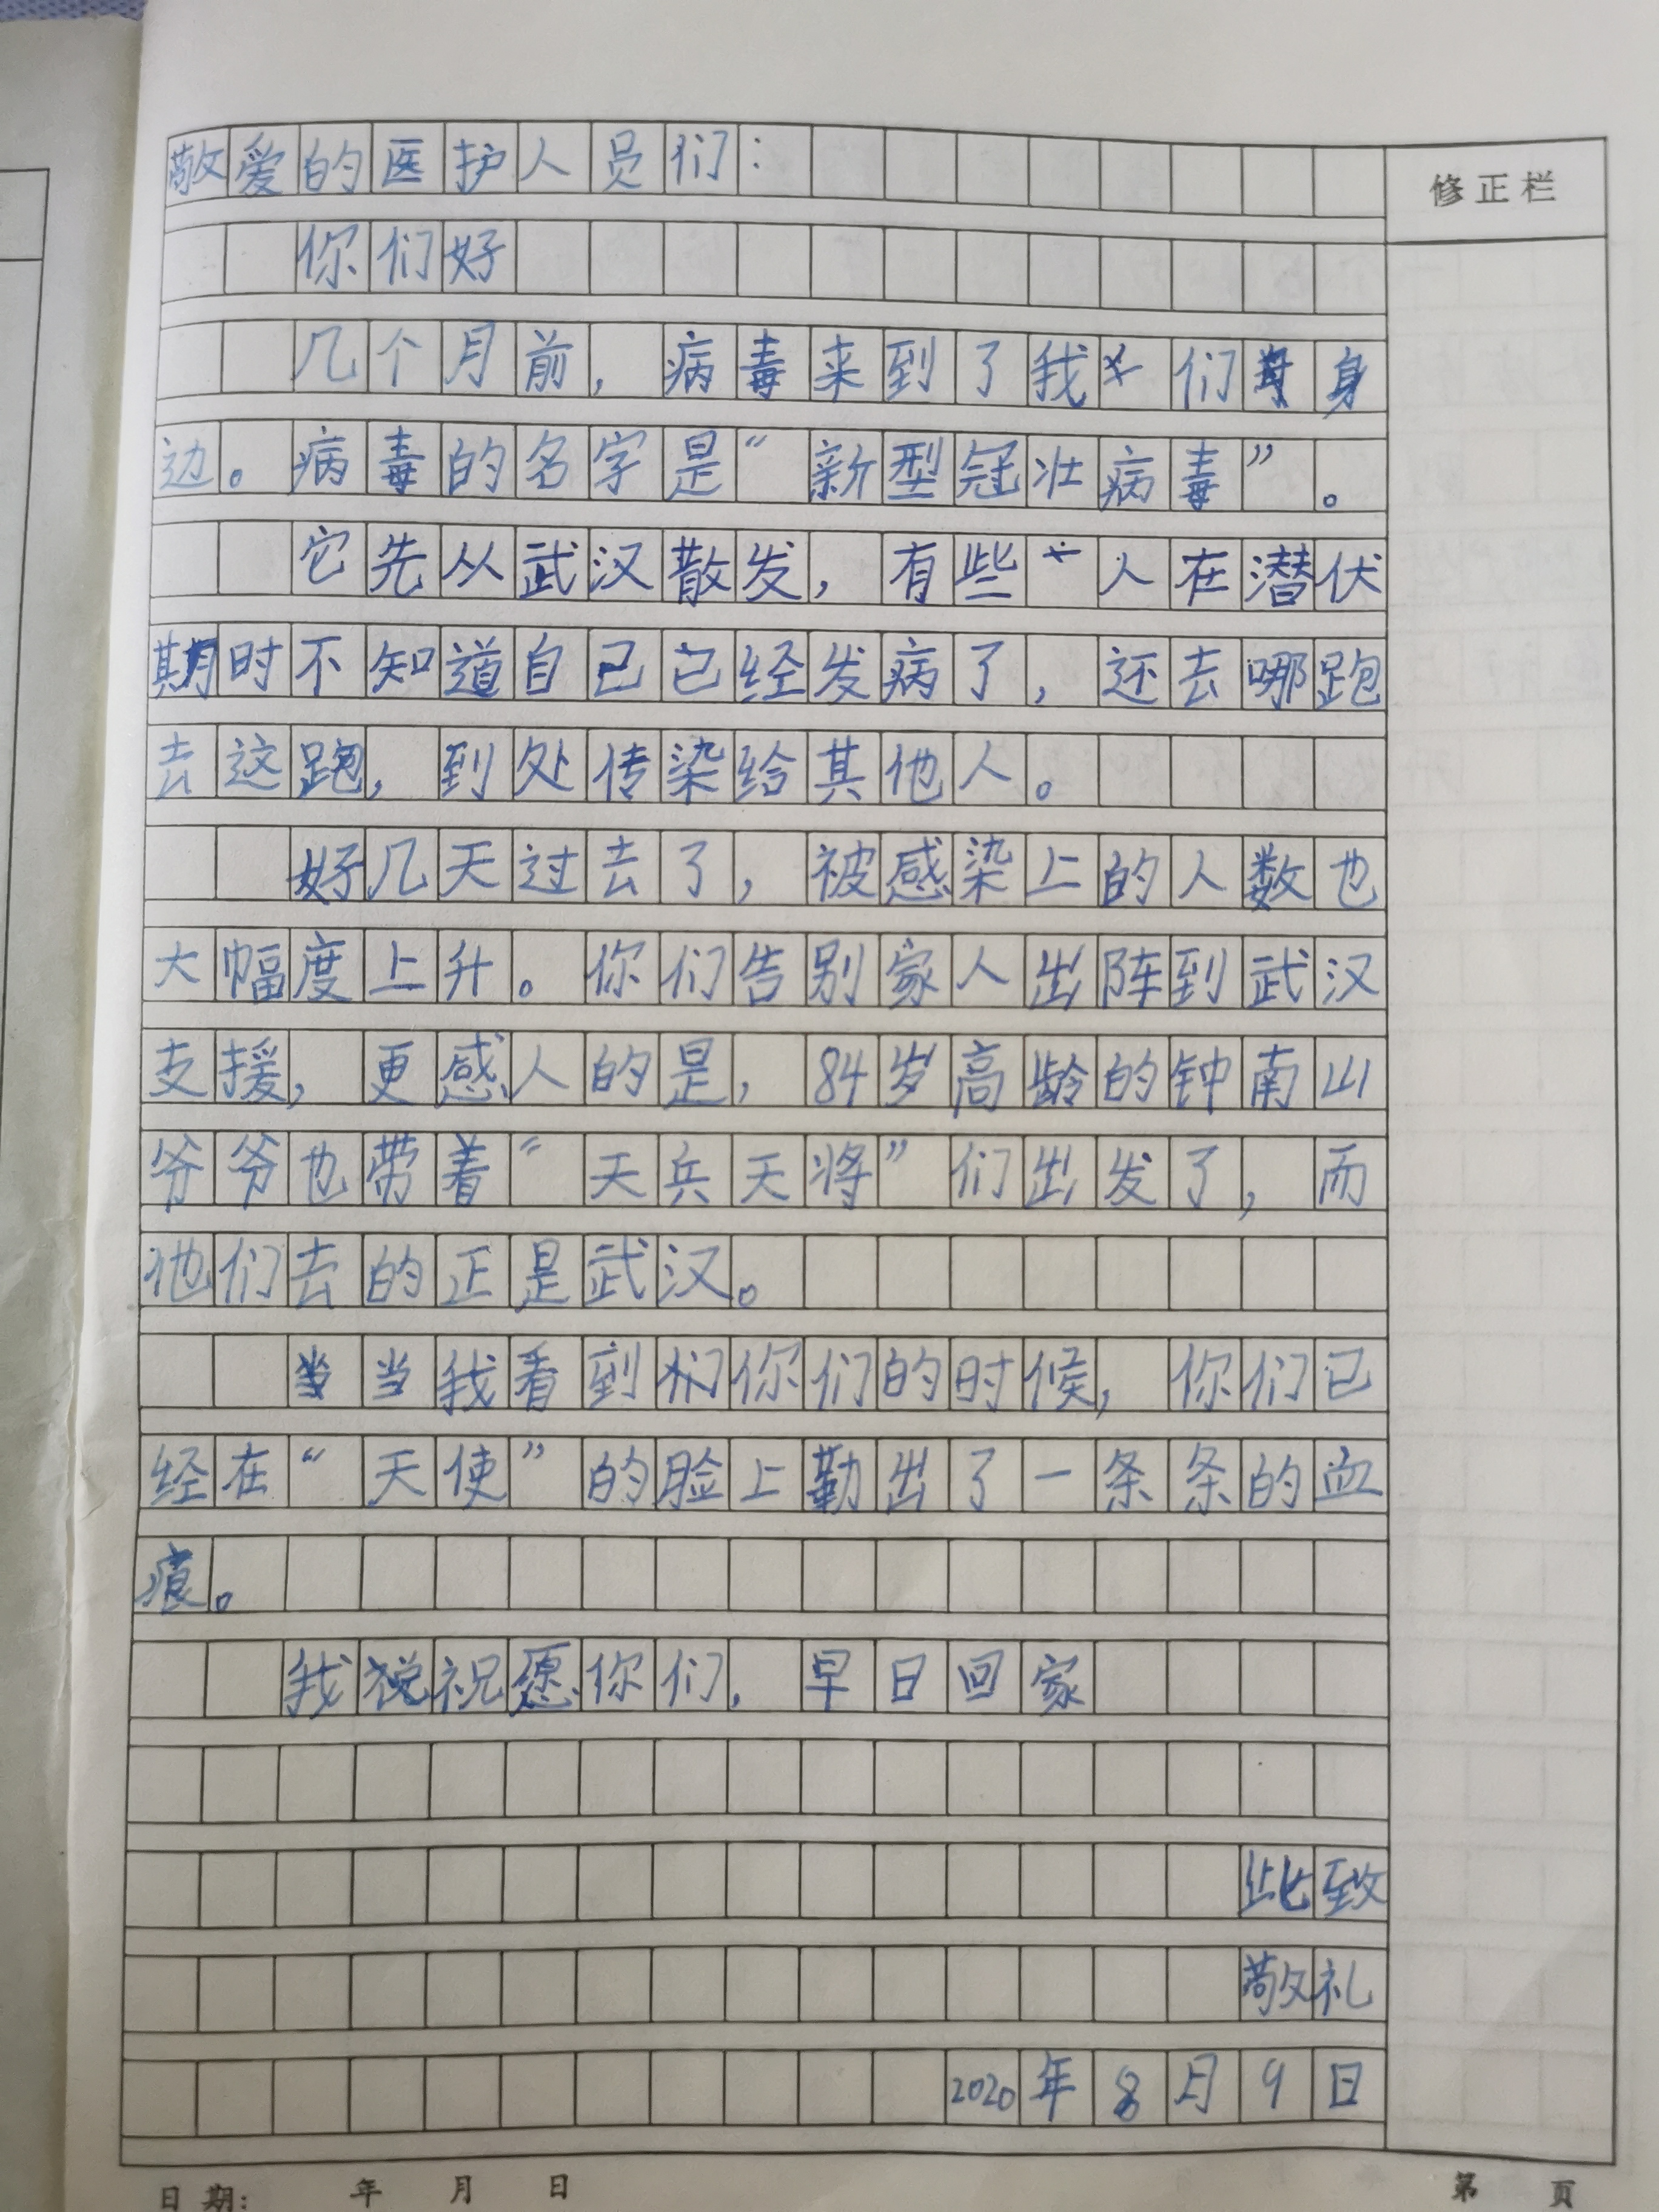 敬爱的医护人员们：
修正栏
你们好
几个月前，病毒来到了我们身
边。病毒的名字是“新型冠壮病毒”。
它先从武汉散发，有些人在潜伏
期时不知道自己已经发病了，还去哪跑
去这跑，到处传染给其他人。
好几天过去了，被感染上的人数也
大幅度上升。你们告别家人出阵到武汉
支援，更感人的是，84岁高龄的钟南山
爷爷也带着“天兵天将”们出发了，而
他们去的正是武汉。
当我看到你们的时候，你们已
经在“天使”的脸上勒出了一条条的血
痕。
我祝愿你们，早日回家
此致
敬礼
2020年8月9日
日期： 年 月 日 第 页